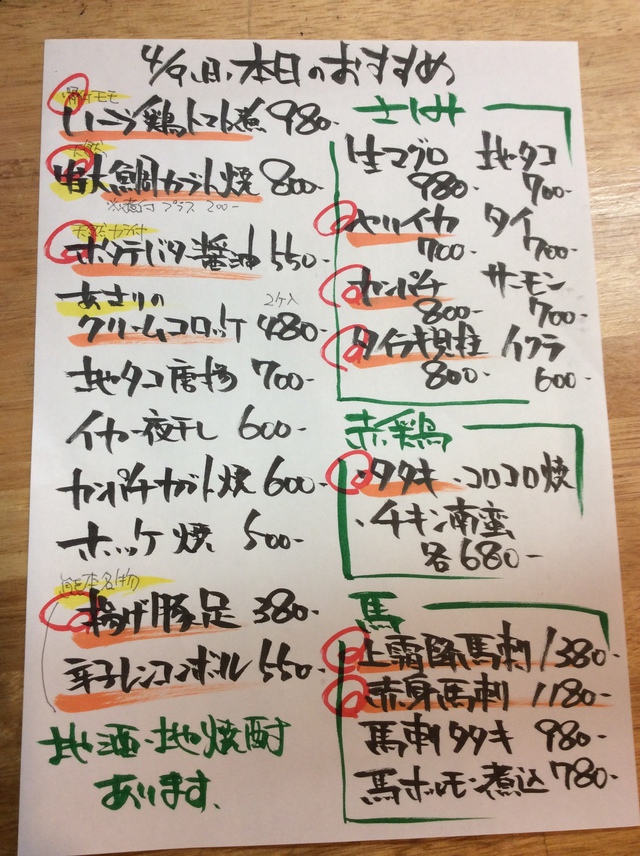 4/9(月)本日のおすすめ
骨付モモ
いこう鶏トマト煮 980-
天然
特大鯛カブト焼 800-
※煮付プラス200-
天然カラ付
ホタテバタ醤油 550-
あさりの
2ケ入
クリームコロッケ 480-
地タコ唐揚 700-
イカ一夜干し 600-
カンパチカブト焼 600-
ホッケ焼 500-
熊本名物
揚げ豚足 380-
辛子レンコンボール 550-
地酒・地焼酎
あります。
さしみ
生マグロ 980-
地タコ 700-
ヤリイカ 700-
タイ 700-
カンパチ 800-
サーモン 700-
タイラギ貝柱 800-
イクラ 600-
赤鶏
・タタキ ・コロコロ焼
・チキン南蛮
各680-
馬
上霜降馬刺 1380-
赤身馬刺 1180-
馬刺タタキ 980-
馬ホルモン煮込 780-